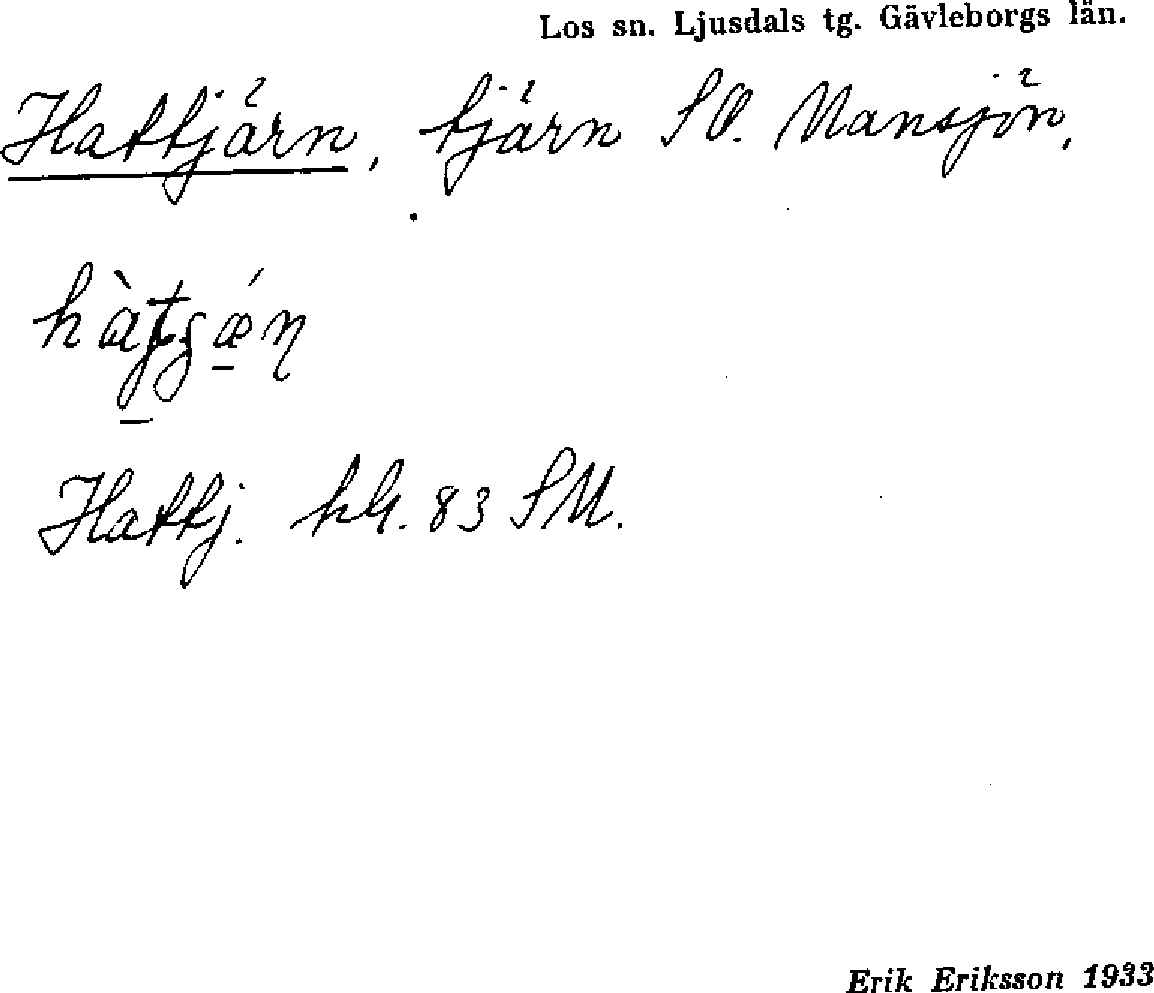 Los sn. Ljusdals tg. Gävleborgs län.
Hattjärn, tjärn SO. Mansjön,
Hattj. hk. 83 SM.
Erik Eriksson 1933